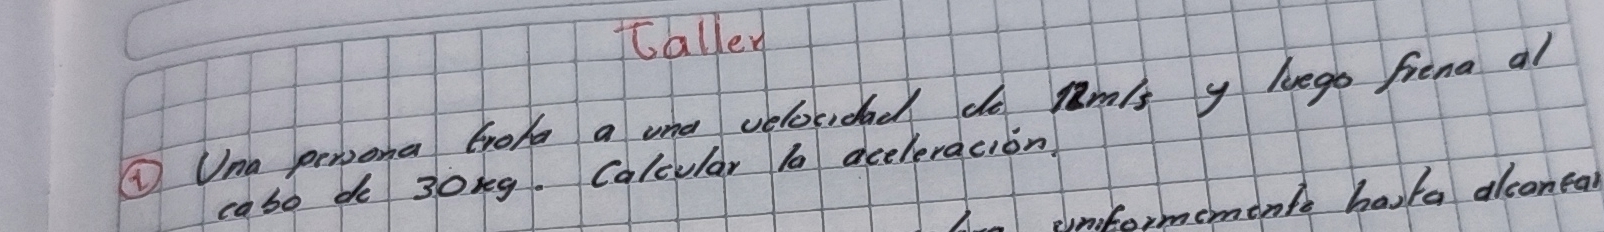 Taller
① Una persona trota a una velocidad de 12m/s y luego frena al
cabo de 30kg. Calcular la aceleración.
uniformemente hasta alcanzar